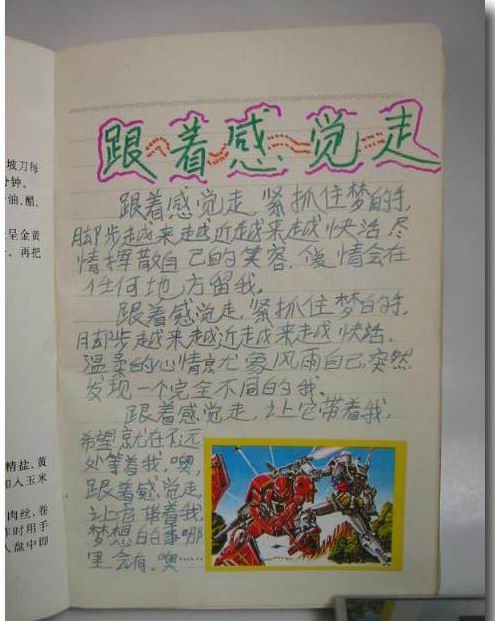 坡刀每
分钟。
油、醋、
呈金黄
、再把
精盐，黄
加入玉米
肉丝，卷
时用手
入盘中即
跟着感觉走
跟着感觉走，紧抓住梦的手，
脚步越来越近越来越快活，尽
情挥散自己的笑容，爱情会在
任何地方留我。
跟着感觉走，紧抓住梦的手，
脚步越来越近越来越快活。
温柔的心情就尤象风雨自己突然
发现一个完全不同的我。
跟着感觉走，让它带着我，
希望就在不远
处等着我，噢，
跟着感觉走，
让它带着我，
梦想的事哪
里会有，噢……